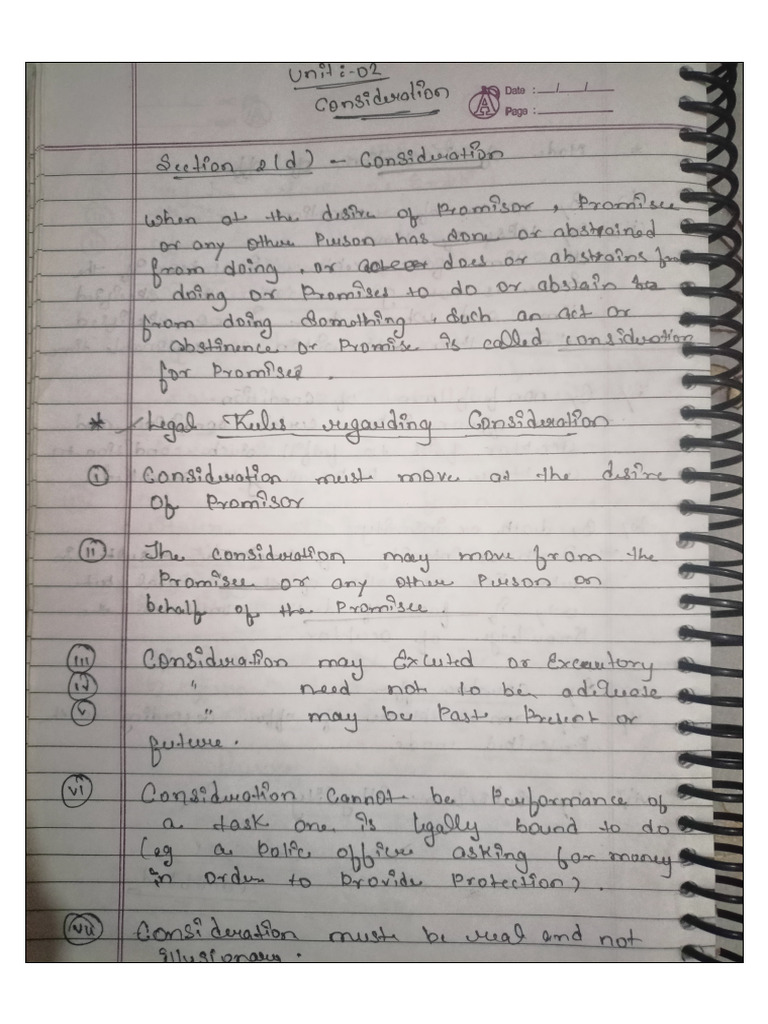 Unit:-02
Consideration
Date : / /
Page :
Section 2(d) - Consideration
When at the desire of Promisor, Promisee
or any other Person has done or abstained
from doing, or does or abstains from
doing or Promises to do or abstain
from doing Something, Such an act or
abstinence or Promise is called consideration
for Promise.
* Legal Rules regarding Consideration
i Consideration must move at the desire
of Promisor
ii The consideration may move from the
Promisee or any other Person on
behalf of the Promisee.
iii Consideration may Excuted or Exceutory
iv " need not to be adiquate
v " may be Past, Present or
future.
vi Consideration cannot be Performance of
a task one is legally bound to do
(eg a Polic officer asking for money
in order to Provide Protection).
vii Consideration must be real and not
illusionary.